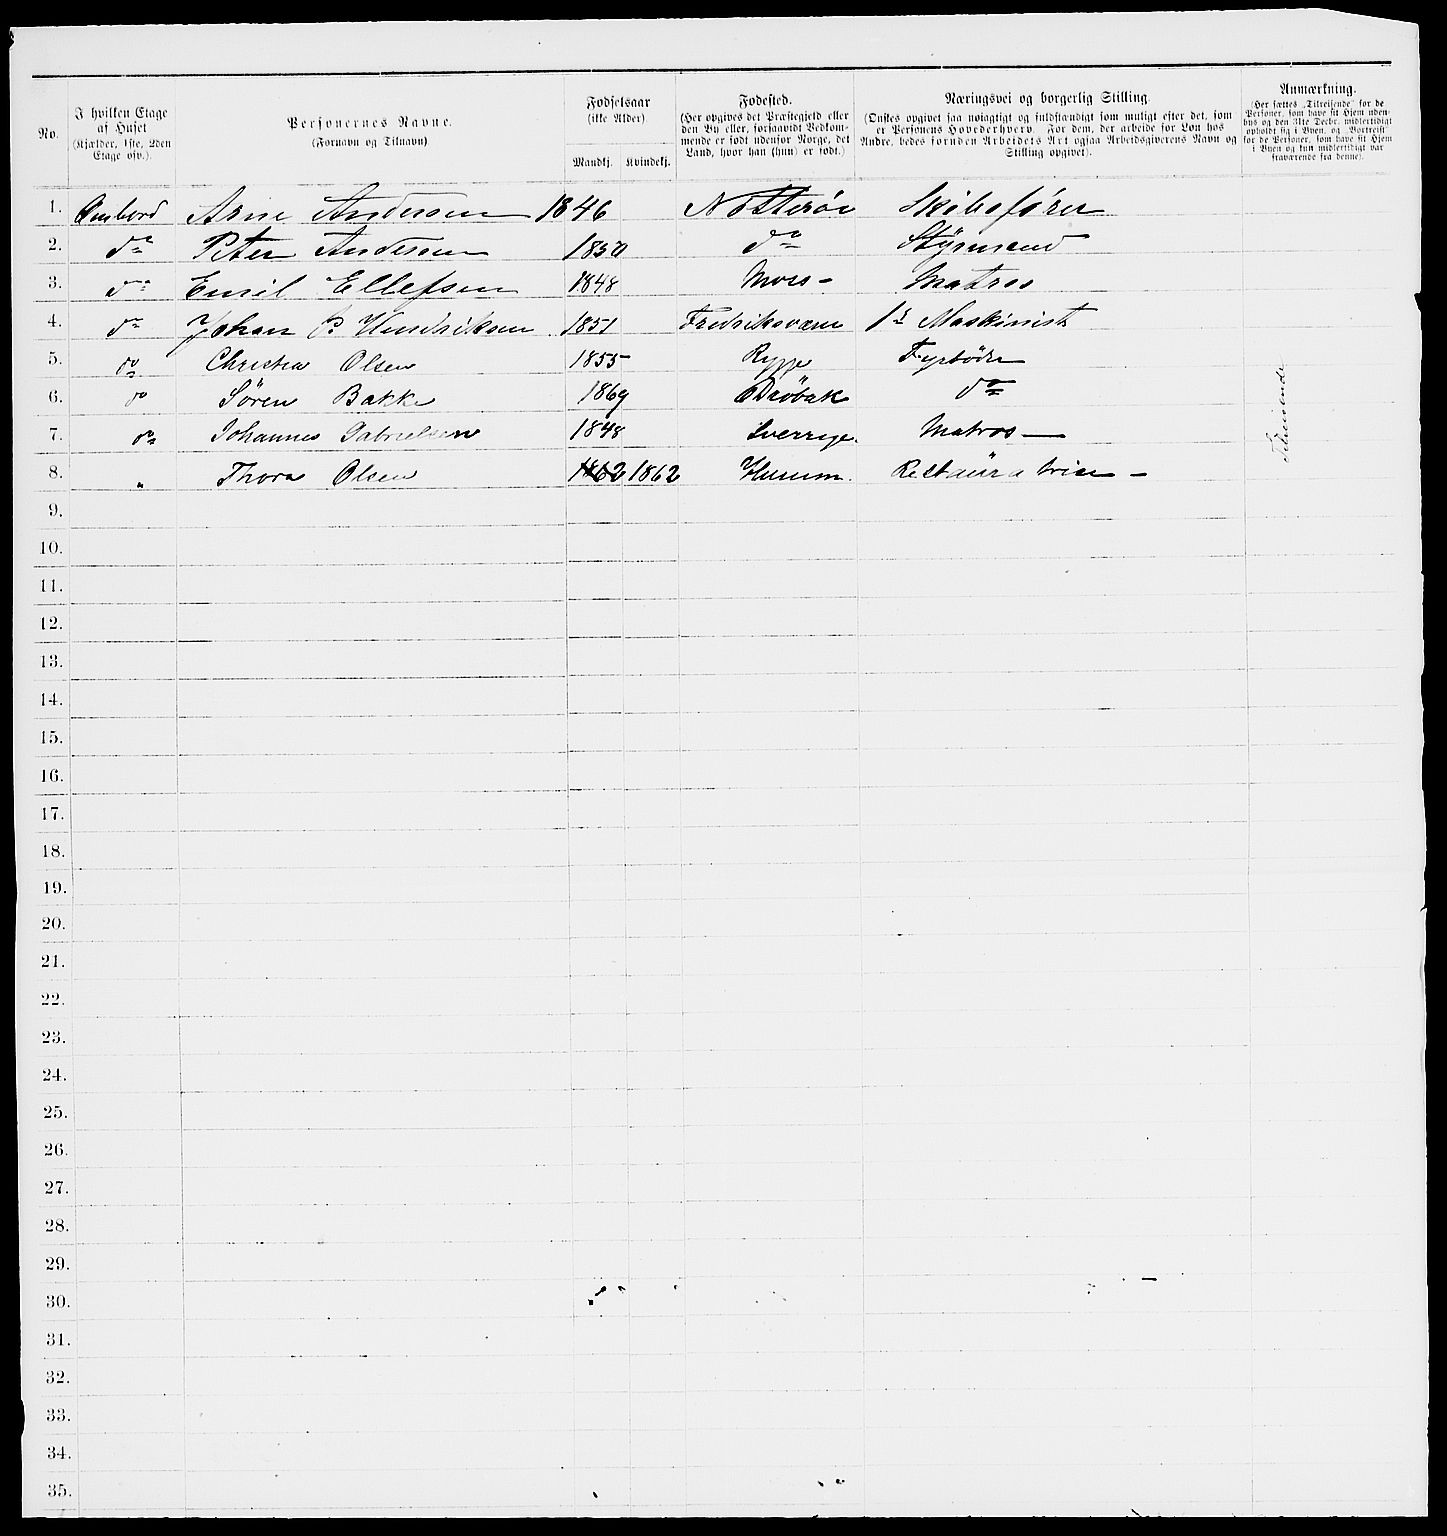 No.
I hvilken Etage af Huset (Kjælder, 1ste, 2den Etage osv.).
Personernes Navne. (Fornavn og Tilnavn)
Fødselsaar (ikke Alder)
Mandkj. Kvindekj.
Fødested. (Her opgives det Præstegjeld eller den By eller, forsaavidt Vedkommende er født udenfor Norge, det Land, hvor han (hun) er født.)
Næringsvei og borgerlig Stilling. (Ønskes opgivet saa nøiagtigt og fuldstændigt som muligt efter det, som er Personens Hovederhverv. For dem, der arbeide for Løn hos Andre, bedes foruden Arbeidets Art ogsaa Arbeidsgiverens Navn og Stilling opgivet).
Anmærkning. (Her sættes „Tilreisende" for de Personer, som have sit Hjem udenbys og den 31te Decbr. midlertidigt opholdt sig i Byen, og „Bortreist" for de Personer, som have sit Hjem i Byen og kun midlertidigt var fraværende fra denne).
1. Ombord Arne Andersen 1846 Nøtterøe Skibsfører
2. do Peter Andersen 1850 do Styrmand
3. do Emil Ellefsen 1848 Moss - Matros
4. do Johan P Hendriksen 1851 Fredriksværn 1ste Maskinist
5. do Christian Olsen 1855 Rygge Fyrbøder
6. do Søren Bakke 1869 Drøbak do
7. do Johannes Gabrielsen 1848 Sverrige Matros —
8. " Thora Olsen 1862 1862 Hurum Restauratrice —
Tilreisende
9.
10.
11.
12.
13.
14.
15.
16.
17.
18.
19.
20.
21.
22.
23.
24.
25.
26.
27.
28.
29.
30.
31.
32.
33.
34.
35.